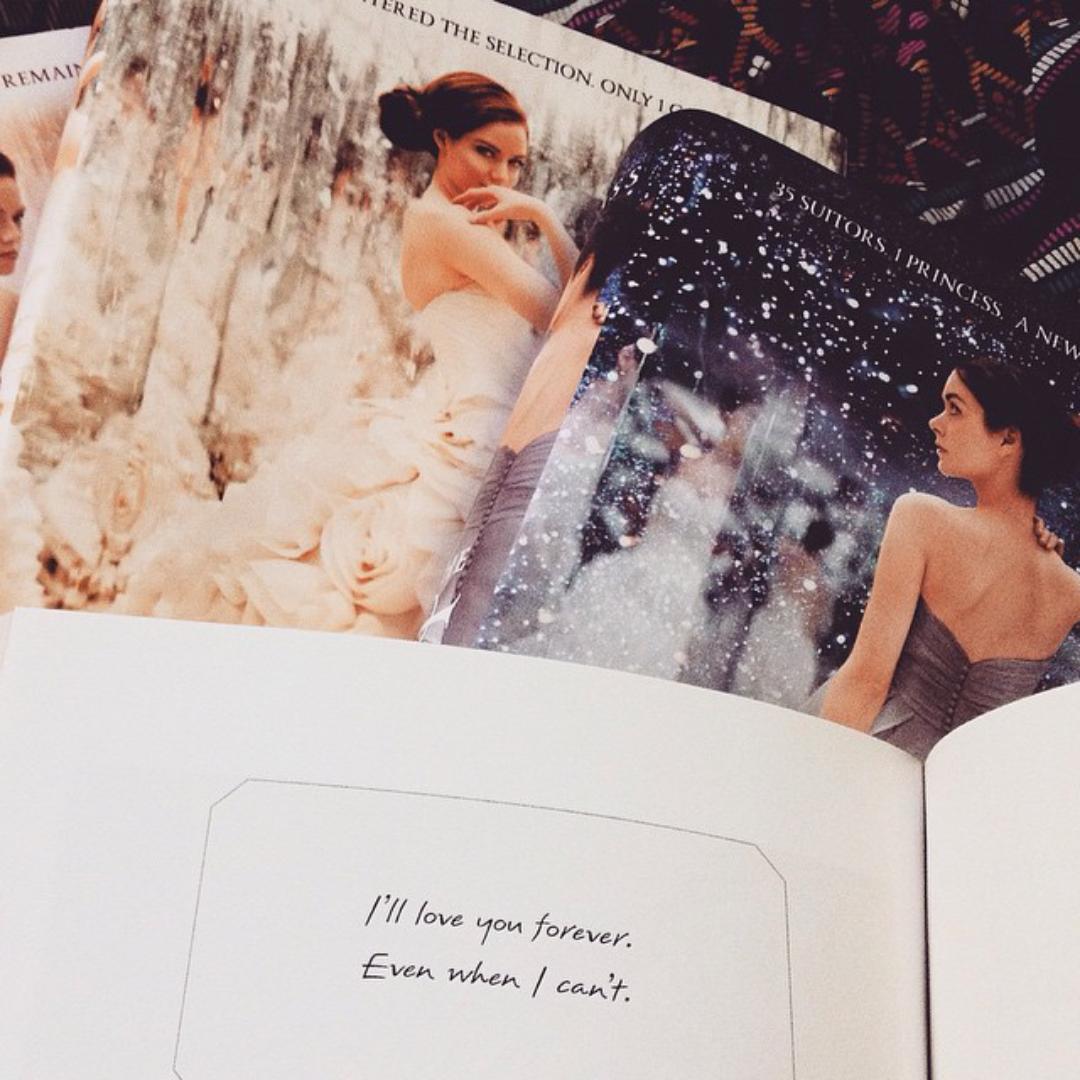 REMAIN
TERED THE SELECTION. ONLY 1
35 SUITORS. 1 PRINCESS. A NEW
I'll love you forever.
Even when I can't.